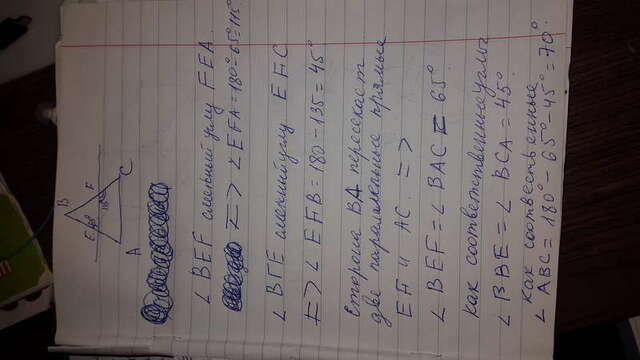 B
E
F
65°
135°
A
C
∠ BEF смежный углу FEA
=> ∠ EFA = 180° - 65° = 115°
∠ BFE смежный углу EFC
=> ∠ EFB = 180 - 135 = 45°
Сторона BA пересекает
две параллельные прямые
EF и AC. =>
∠ BEF = ∠ BAC = 65°
как соответственные углы
∠ BFE = ∠ BCA = 45°
как соотвественные
∠ ABC = 180° - 65° - 45° = 70°